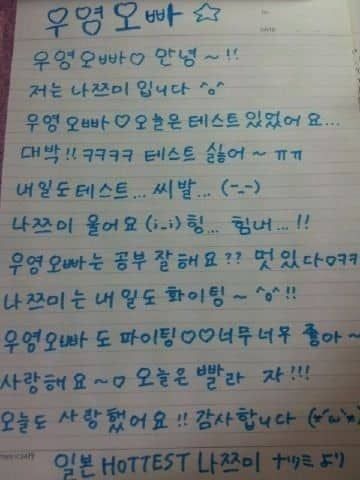 우영오빠☆
우영오빠♡ 안녕~!!
저는 나쯔미 입니다 ^o^
우영오빠♡오늘은 테스트 있었어요...
대박!!ㅋㅋㅋㅋ 테스트 싫어~ㅠㅠ
내일도테스트... 씨발... (-_-)
나쯔미 울어요(i_i)힝... 힘내...!!
우영오빠는 공부 잘해요?? 멋있다ㅇㅋㅋ
나쯔미는 내일도 화이팅~^o^!!
우영오빠 도 파이팅♡♡너무너무 좋아~
사랑해요~♡ 오늘은 빨라 자!!!
오늘도 사랑했어요!! 감사합니다 (*´ω`*)
일본 HOTTEST 나쯔미 ナツミより